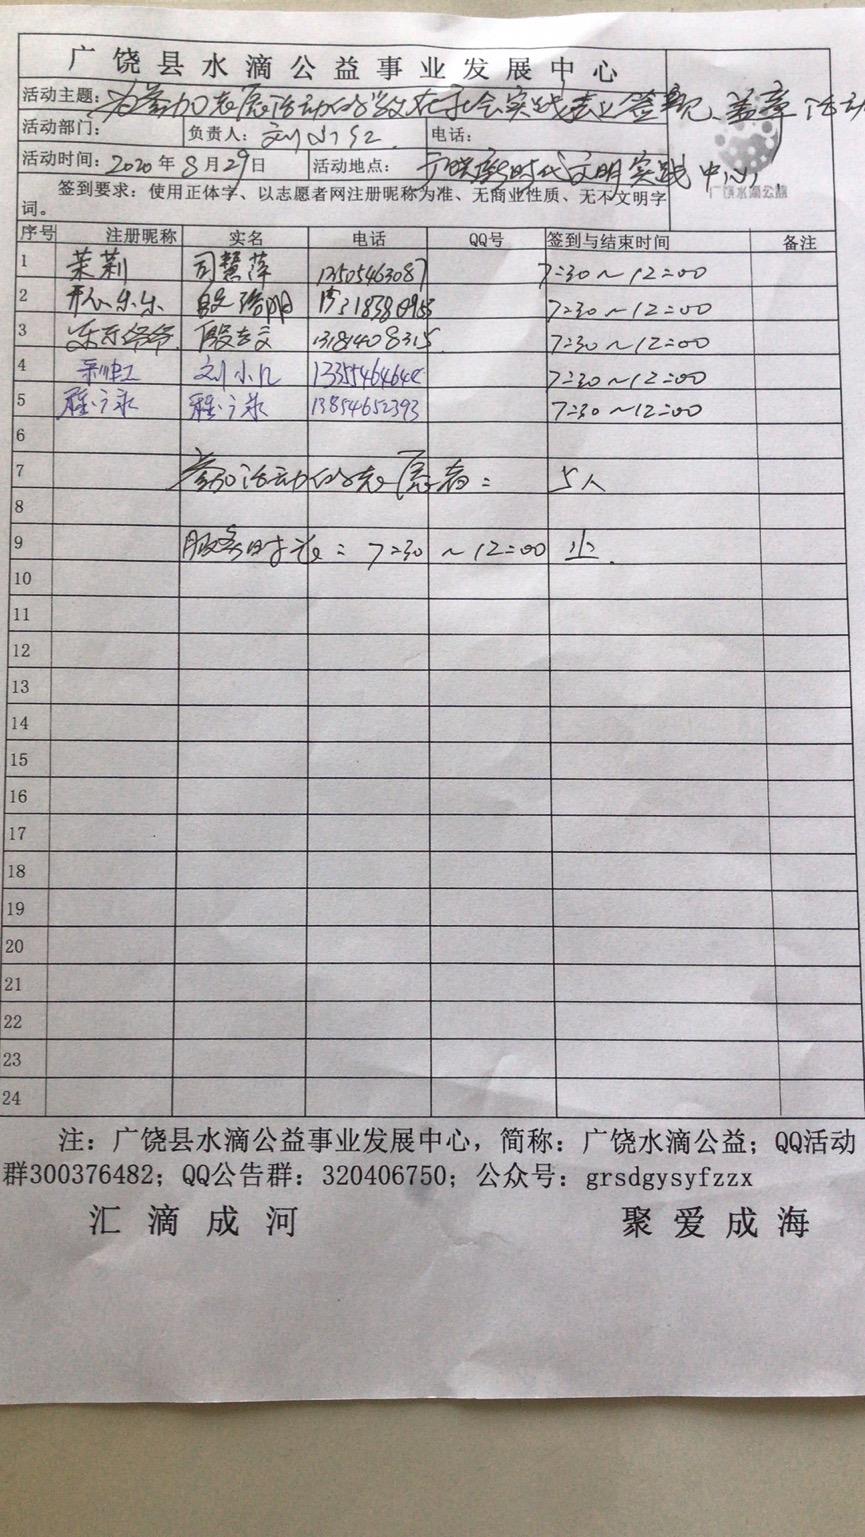 广饶县水滴公益事业发展中心
活动主题：为参加志愿活动的学生在社会实践表上签见、盖章活动
活动部门： 负责人：刘小红 电话：
活动时间：2020年8月29日 活动地点：新时代文明实践中心
广饶水滴公益
签到要求：使用正体字、以志愿者网注册昵称为准、无商业性质、无不文明字
词。
序号 注册昵称 实名 电话 QQ号 签到与结束时间 备注
1 茉莉 司慧萍 13505463087 7:30～12:00
2 开心乐乐 7:30～12:00
3 乐乐爷爷 13181408315 7:30～12:00
4 刘小红 7:30～12:00
5 13854652393 7:30～12:00
6
7 参加活动的志愿者： 5人
8
9 服务时间：7:30～12:00止.
10
11
12
13
14
15
16
17
18
19
20
21
22
23
24
注：广饶县水滴公益事业发展中心，简称：广饶水滴公益；QQ活动
群300376482；QQ公告群：320406750；公众号：grsdgysyfzzx
汇滴成河 聚爱成海